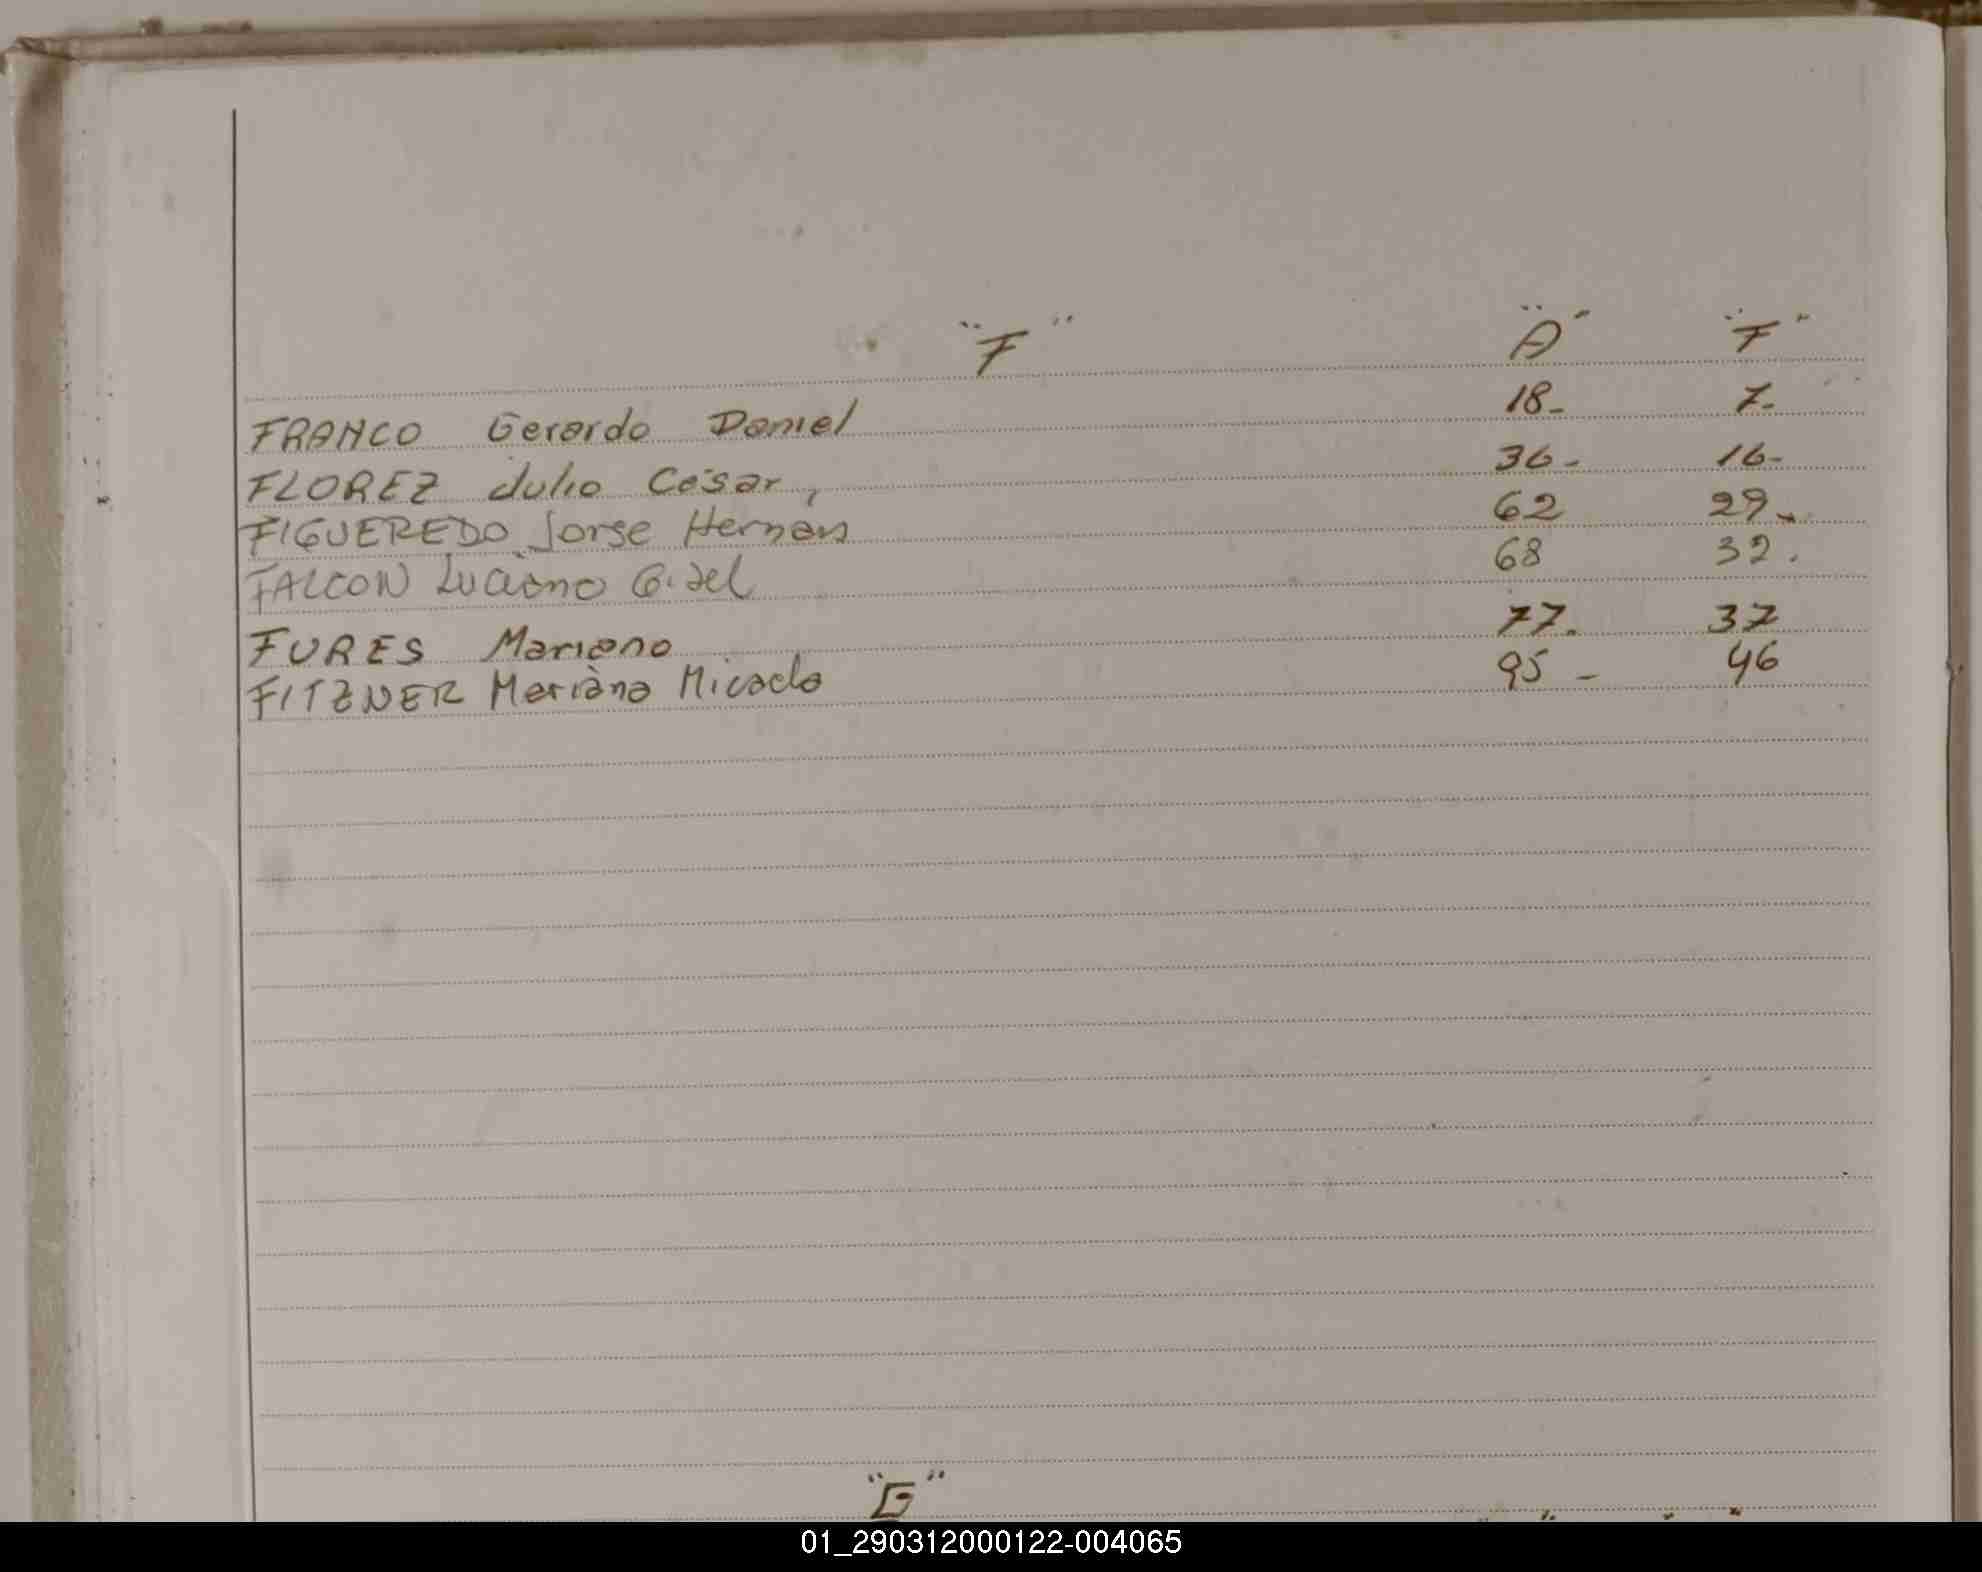 "F" "A" "F"
FRANCO Gerardo Daniel 18- 7-
FLOREZ Julio César, 36- 16-
FIGUEREDO Jorge Hernán 62 29-
FALCON Luciano 68 32.
FURES Mariano 77. 37
FITZNER Mariana Micaela 95- 46
"G"
01_290312000122-004065